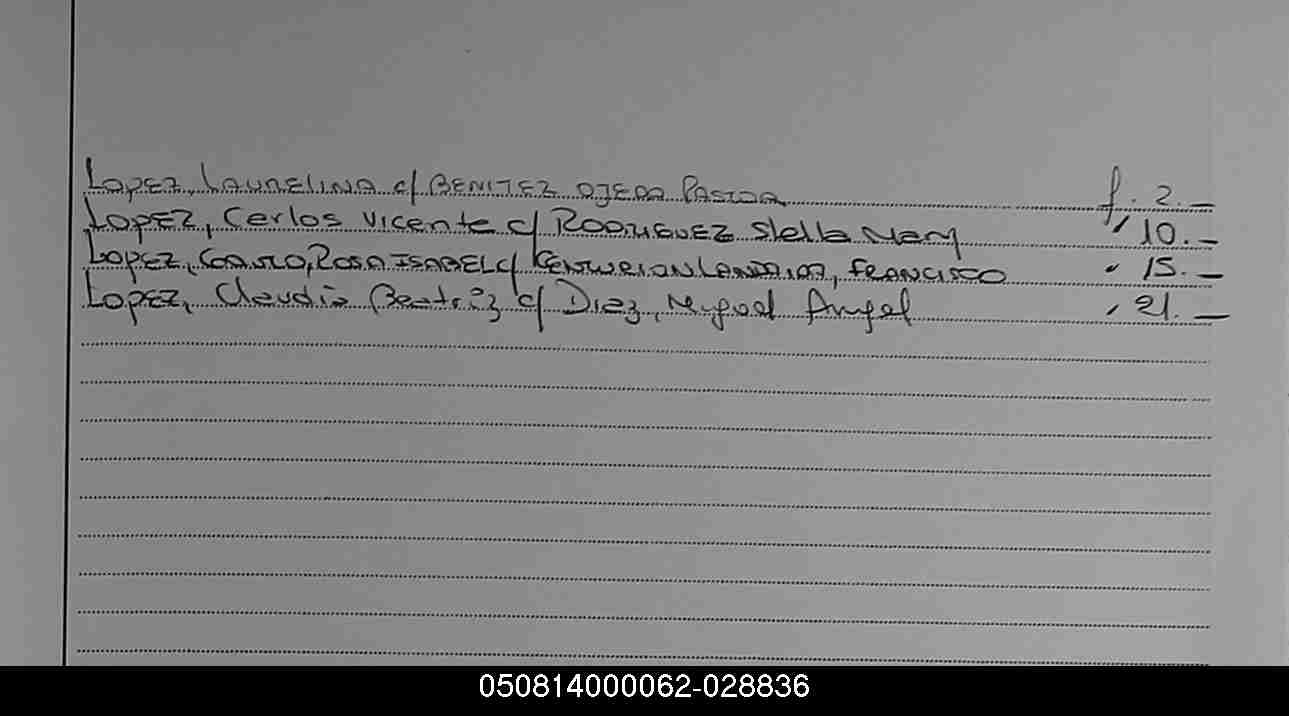 LOPEZ, LAURELINA c/ BENITEZ OJEDA PASTOR f. 2.-
LOPEZ, Carlos Vicente c/ RODRIGUEZ Stella Mary " 10.-
LOPEZ, CASTRO, ROSA ISABEL c/ CENTURION LANDAIDA, FRANCISCO " 15.-
LOPEZ, Claudia Beatriz c/ Diez, Miguel Angel " 21.-
050814000062-028836